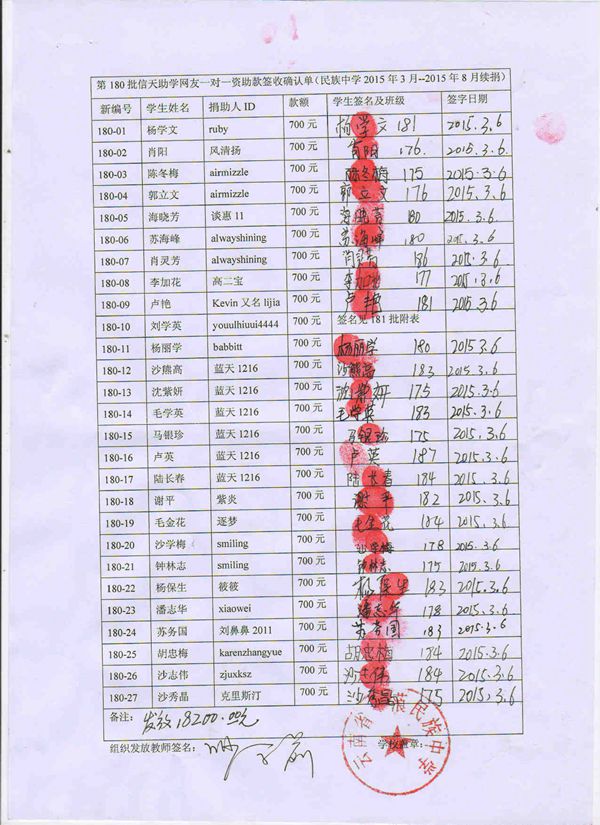 第180批信天助学网友一对一资助款签收确认单(民族中学2015年3月--2015年8月续捐)
新编号 学生姓名 捐助人ID 款额 学生签名及班级 签字日期
180-01 杨学文 ruby 700元 杨学文 181 2015.3.6
180-02 肖阳 风清扬 700元 肖阳 176. 2015.3.6
180-03 陈冬梅 airmizzle 700元 陈冬梅 175 2015.3.6
180-04 郭立文 airmizzle 700元 郭立文 176 2015.3.6
180-05 海晓芳 谈惠11 700元 海晓芳 180 2015.3.6
180-06 苏海峰 alwayshining 700元 苏海峰 180 2015.3.6
180-07 肖灵芳 alwayshining 700元 肖灵芳 186 2015.3.6
180-08 李加花 高二宝 700元 李加花 177 2015.3.6
180-09 卢艳 Kevin又名lijia 700元 卢艳 181 2015.3.6
180-10 刘学英 youulhiuui4444 700元 签名见181批附表
180-11 杨丽学 babbitt 700元 杨丽学 180 2015.3.6
180-12 沙熊高 蓝天1216 700元 沙熊高 183 2015.3.6
180-13 沈紫妍 蓝天1216 700元 沈紫妍 175 2015.3.6
180-14 毛学英 蓝天1216 700元 毛学英 183 2015.3.6
180-15 马银珍 蓝天1216 700元 马银珍 175 2015.3.6
180-16 卢英 蓝天1216 700元 卢英 187 2015.3.6
180-17 陆长春 蓝天1216 700元 陆长春 184 2015.3.6
180-18 谢平 紫炎 700元 谢平 182 2015.3.6
180-19 毛金花 逐梦 700元 毛金花 184 2015.3.6
180-20 沙学梅 smiling 700元 沙学梅 178 2015.3.6
180-21 钟林志 smiling 700元 钟林志 175 2015.3.6
180-22 杨保生 筱筱 700元 杨保生 183 2015.3.6
180-23 潘志华 xiaowei 700元 潘志华 178 2015.3.6
180-24 苏务国 刘鼻鼻2011 700元 苏务国 183 2015.3.6
180-25 胡忠梅 karenzhangyue 700元 胡忠梅 184 2015.3.6
180-26 沙志伟 zjuxksz 700元 沙志伟 184 2015.3.6
180-27 沙秀晶 克里斯汀 700元 沙秀晶 175 2015.3.6
备注: 发放18200.00元
组织发放教师签名: 学校盖章:
云南省 民族中学